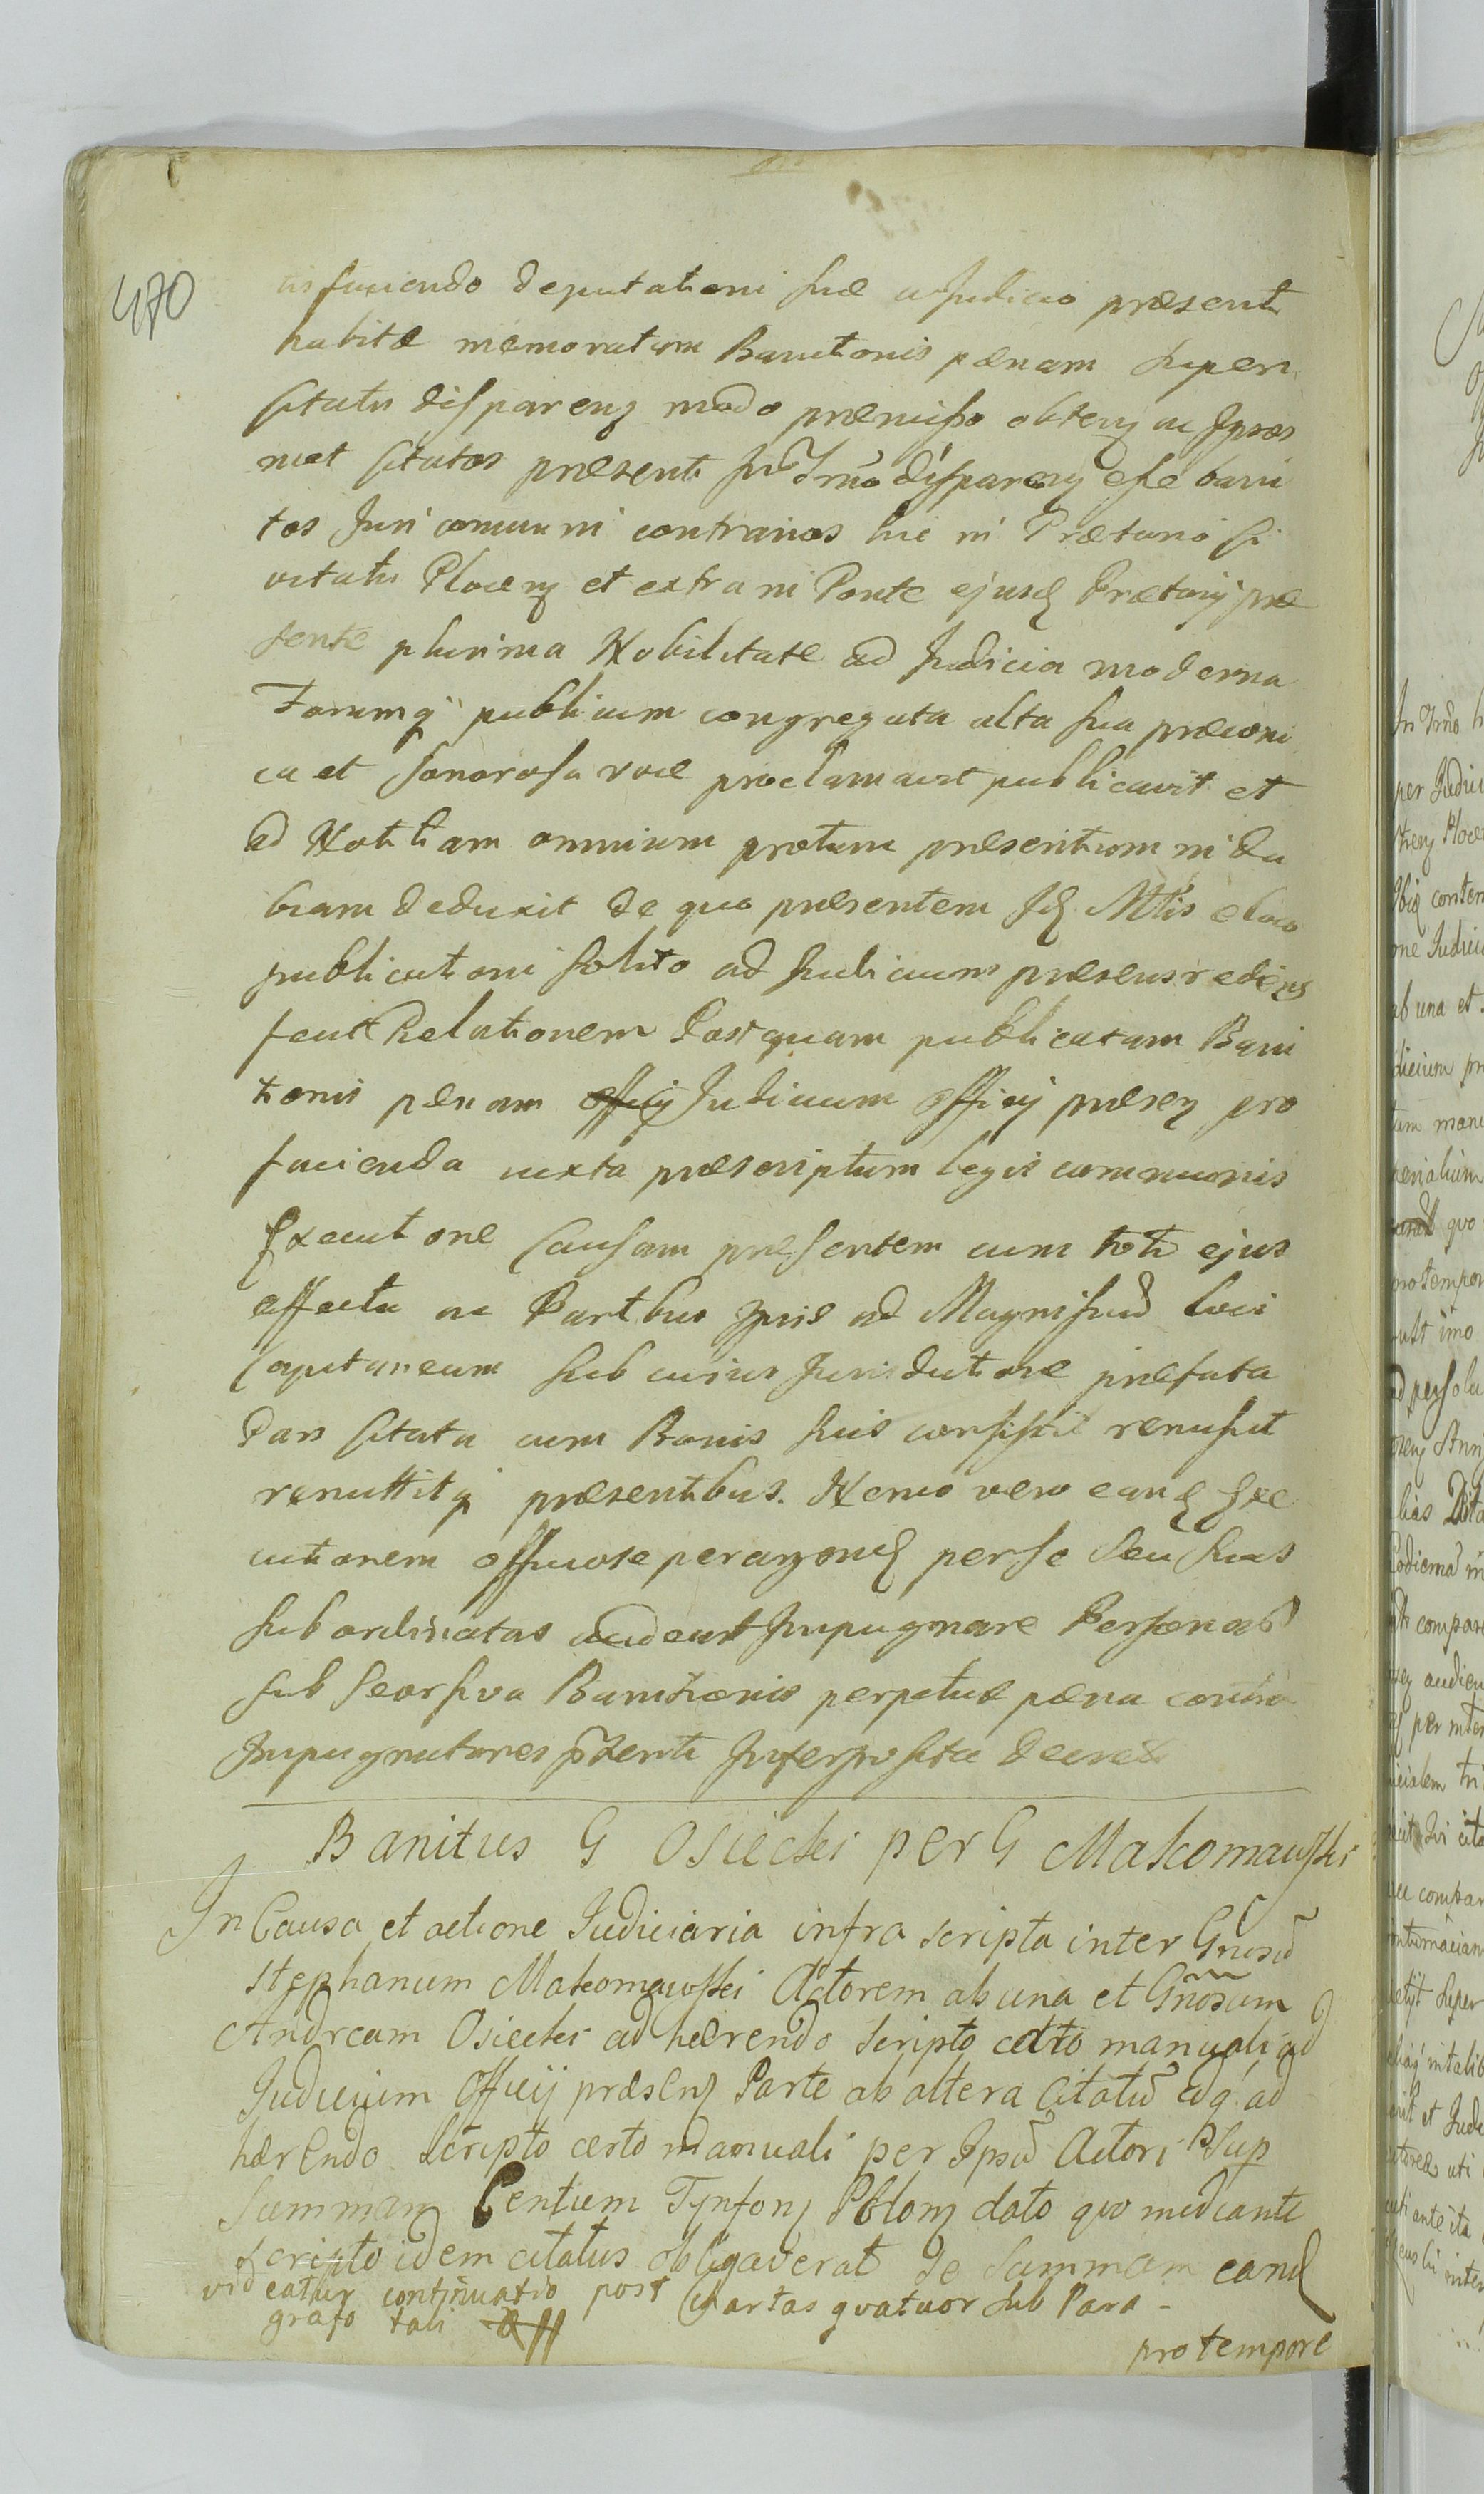 470
tisfaciendo deputationi suæ a Judicio præsenti
habitæ memoratam Banitionis pænam super
Citatis dispareng modo præmisso obteng ac Ipsos
met Citatos præsenti in Trno dispareng esse bani
tos Juri communi contrarios hic in Prætorio Ci
vitatis Ploceng et extra in Ponte ejusd Prætorij præ
sente plurima Nobilitate ad Judicia moderna
Forumq publicum congregata alta sua præconi
ca et sonorosa voce proclamavit publicavit et
ad Notitiam omnium protunc præsentium in du
biam deduxit de quo præsentem Id Mtis e loco
publicationi solito ad Judicium præsens rediens
fecit Relationem Postquam publicatam Bani
tionis pænam officij Judicium Officij præseng pro
facienda iuxta præscriptum legis communis
Executione Causam præsentem cum toto ejus
effectu ac Partibus Ipsis ad Magnificũ loci
Capitaneum sub cuius Jurisdictione præfata
Pars Citata cum Bonis suis consistit remisit
remittitq præsentibus. Nemo vero eand Exe
cutionem officiose peragend per se seu suas
subordinatas audeat Impugnare Personas
sub seorsiva Banitionis perpetuæ pæna contra
Impugnatores pzenti Interposita decreti
Banitus G Osiecki per G Makomawski
In Causa et actione Judiciaria infra scripta inter Gnosũ
Stephanum Makomawski Actorem ab una et Gnosum
Andream Osiecki ad hærendo Scripto certo manuali ad
Judicium Officij præseng Parte ab altera Citatũ idq ad
hærendo Scripto certo manuali per Ipsũ Actori sup
Summam Centum Tynfong Polong dato quo mediante
scripto idem citatus obligaverat se summam eand
videatur continuatio post Chartas quatuor sub Para-
grafo tali
pro tempore